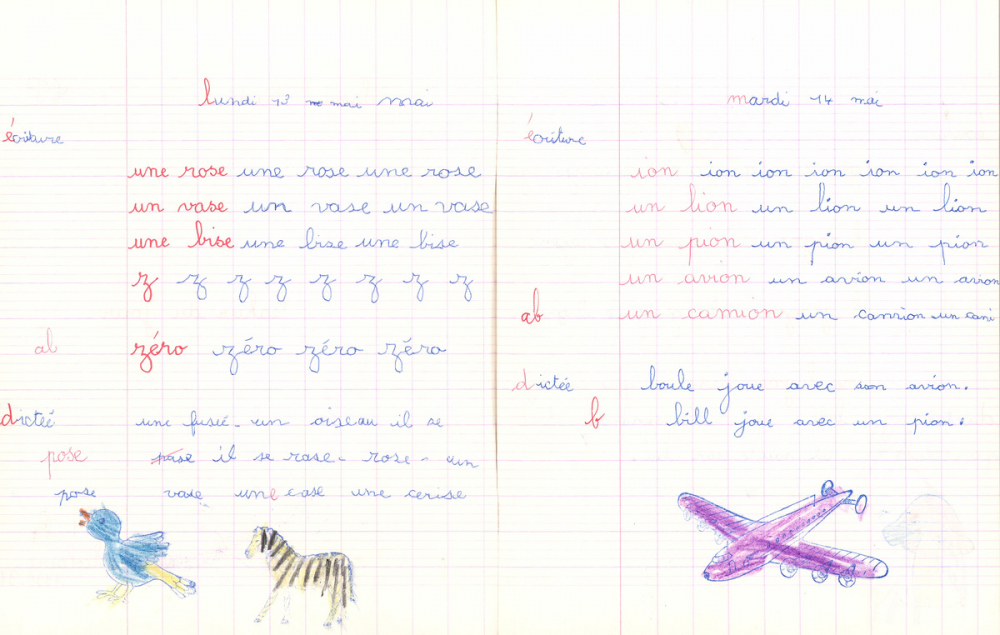 lundi 13 mai mai
écriture
une rose une rose une rose
un vase un vase un vase
une bise une bise une bise
z z z z z z z z
ab
zéro zéro zéro zéro
dictée
une fusée - un oiseau il se
pose
il se rase - rose - un
pose
vase une case une cerise
mardi 14 mai
écriture
ion ion ion ion ion ion ion
un lion un lion un lion
un pion un pion un pion
un avion un avion un avion
ab
un camion un camion un cami
dictée
boule joue avec son avion.
b
bill joue avec un pion.